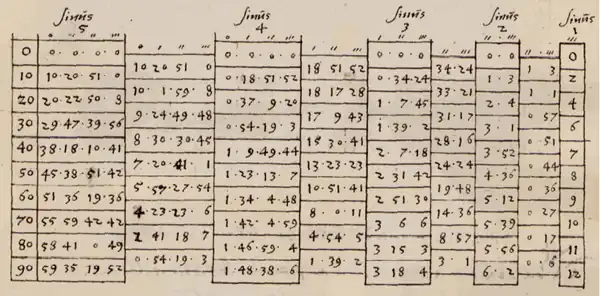 sinus 5 sinus 4 sinus 3 sinus 2 sinus 1
0 0·0·0·0 0·0·0·0 0·0·0 0·0 0
10 20 51 0 18 51 52 34·24 1 3
10 10·20·51·0 0·18·51·52 0·34·24 1·3 2
10·1·59·8 18 17 28 33·21 1 1
20 20·22 50·8 0·37·9·20 1·7·45 2·4 4
9·24·49·48 17 9 43 31·17 0 57
30 29·47·39·56 0·54·19·3 1·39·2 3·1 6
8·30·30·45 15 30·41 28·16 0 51
40 38·18·10·41 1·9·49·44 2·7·18 3·52 7
7·20·41·1 13·23·23 24·24 0 44
50 45·38·51·42 1·23·13·7 2 31 42 4·36 8
5·57·27·54 10·51·41 19·48 0 36
60 51 36 19·36 1·34·4·48 2 51 30 5·12 9
4·23·23·6 8·0·11 14·36 0 27
70 55 59 42 42 1·42·4·59 3 6 6 5·39 10
2 41 18 7 4·54·5 8·57 0 17
80 58 41 0 49 1·46·59·4 3 15 3 5 56 11
0·54·19·3 1 39·2 3·1 0·6
90 59 35 19 52 1·48·38·6 3 18 4 6·2 12